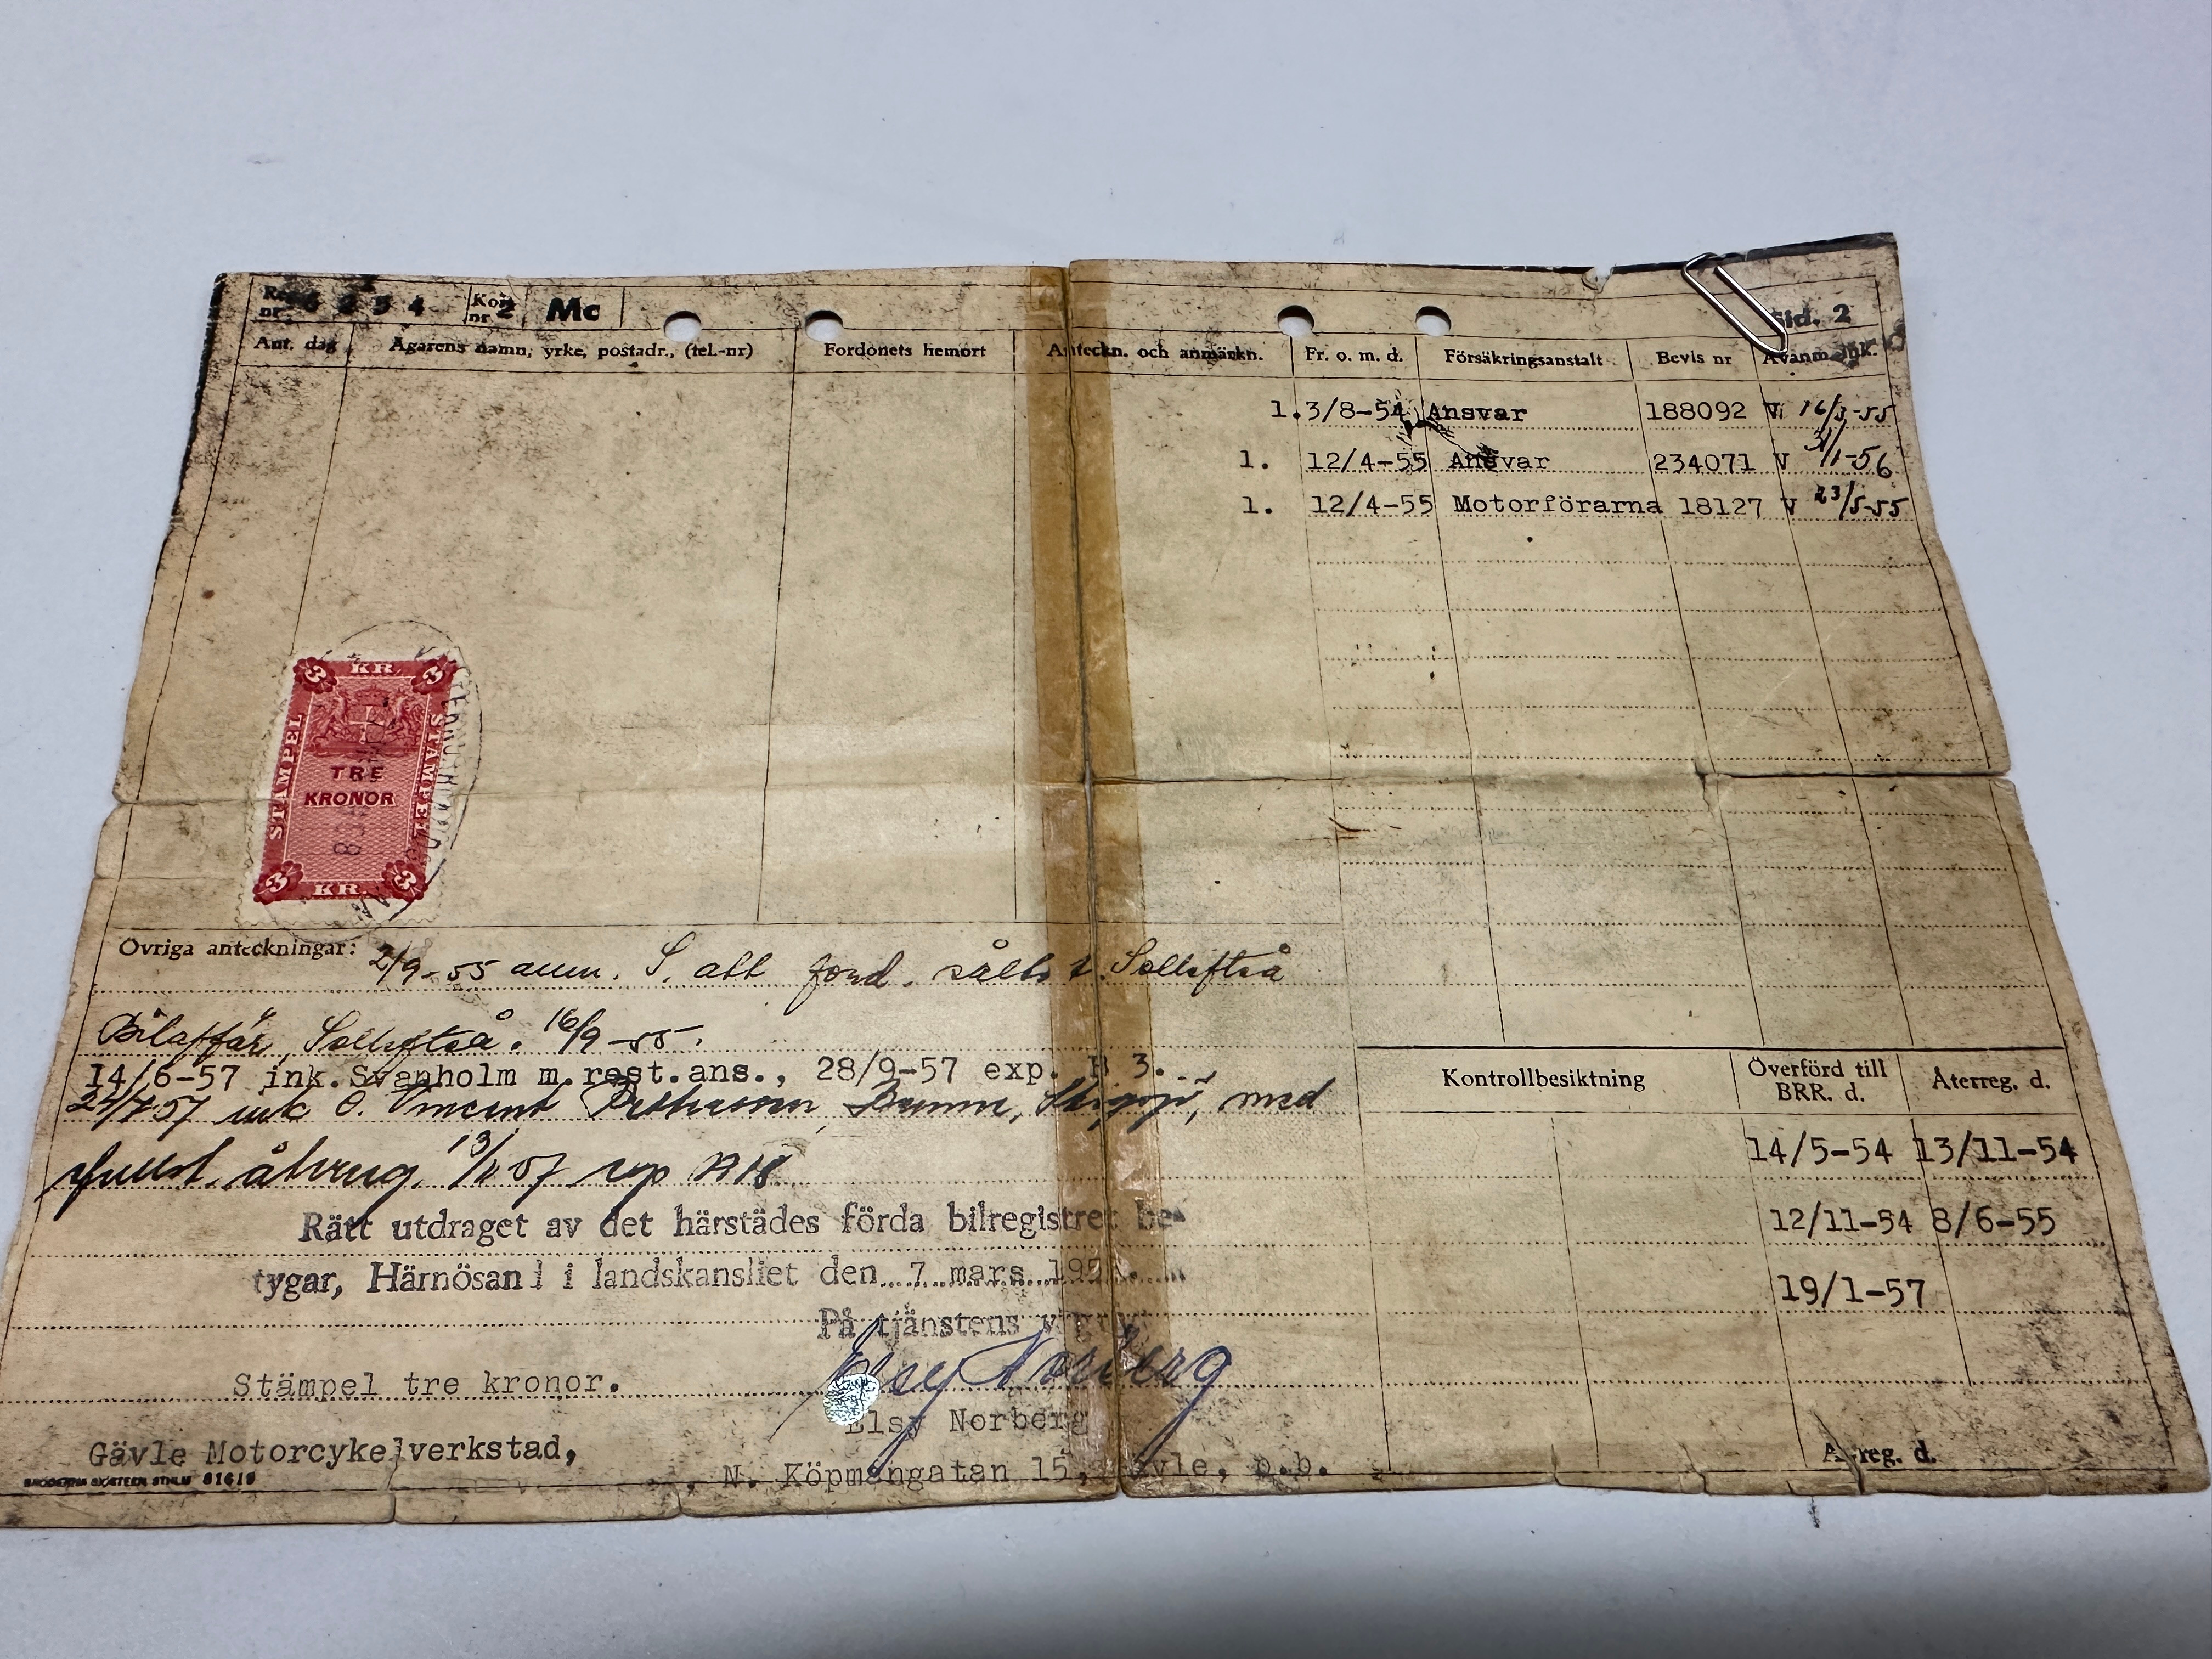 Kort nr 2 Mc
Sid. 2
Ant. dag Ägarens namn, yrke, postadr., (tel.-nr) Fordonets hemort Anteckn. och anmärkn. Fr. o. m. d. Försäkringsanstalt Bevis nr Avanm.
1. 3/8-54 Ansvar 188092 V 16/3-55
1. 12/4-55 Ansvar 234071 V 31/1-56
1. 12/4-55 Motorförarna 18127 V 23/5-55
KR
3 3
STÄMPEL STÄMPEL
TRE
KRONOR
3 KR. 3
Övriga anteckningar: 2/9-55 anm. S. att ford. sålts t. Sollefteå
Bilaffär, Sollefteå. 16/9-55.
14/6-57 ink. Svanholm m.rest.ans., 28/9-57 exp. R 3.
ink O. Vincent Pettersson, med
Kontrollbesiktning Överförd till BRR. d. Återreg. d.
14/5-54 13/11-54
12/11-54 8/6-55
19/1-57
Rätt utdraget av det härstädes förda bilregistret be-
tygar, Härnösand i landskansliet den 7 mars
På tjänstens vägnar
Elsy Norberg
Stämpel tre kronor.
Elsy Norberg
Gävle Motorcykelverkstad,
N. Köpmangatan 15, Gävle, p.b.
Avreg. d.
81619